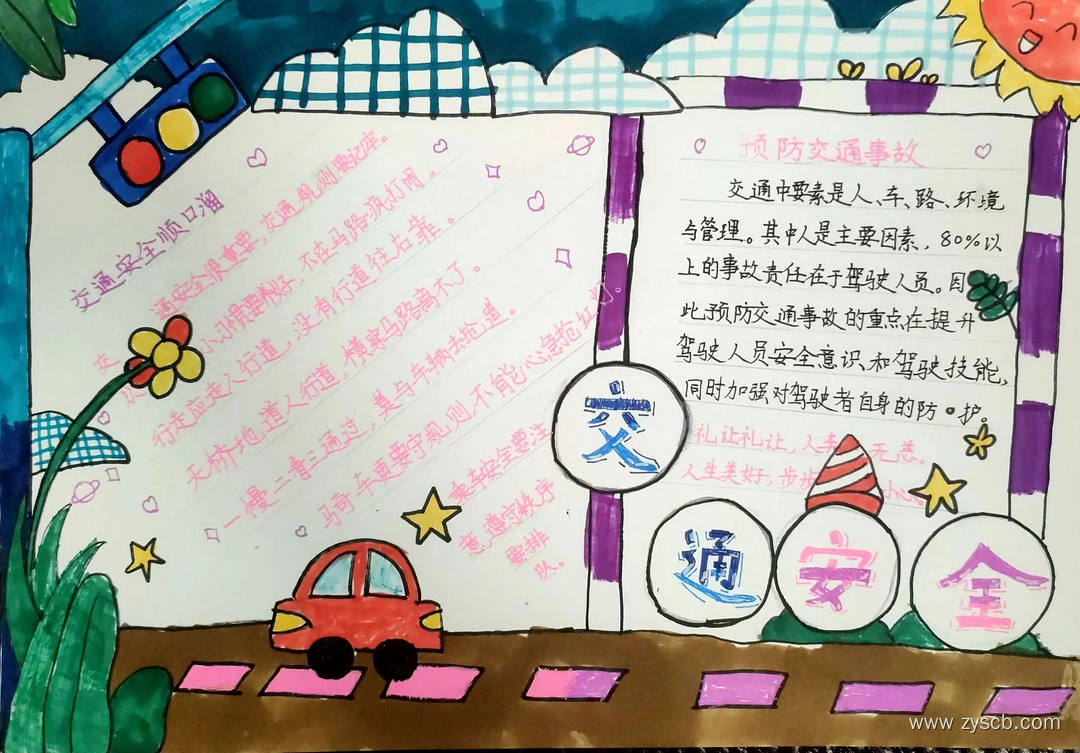 交通安全顺口溜
交通安全很重要，交通规则要记牢。
从小习惯要养好，不在马路疯打闹。
行走应走人行道，没有行道往右靠。
天桥地道人行道，横穿马路离不了。
一慢二看三通过，莫与车辆去抢道。
骑车更要守规则，不能心急抢红灯。
乘车安全要注
意，遵守秩序
要排
队。
预防交通事故
交通中要素是人、车、路、环境
与管理。其中人是主要因素，80%以
上的事故责任在于驾驶人员。因
此，预防交通事故的重点在提升
驾驶人员安全意识和驾驶技能，
同时加强对驾驶者自身的防护。
礼让礼让，人车无恙。
人生美好，步步小心。
交
通
安
全
www.zyscb.com